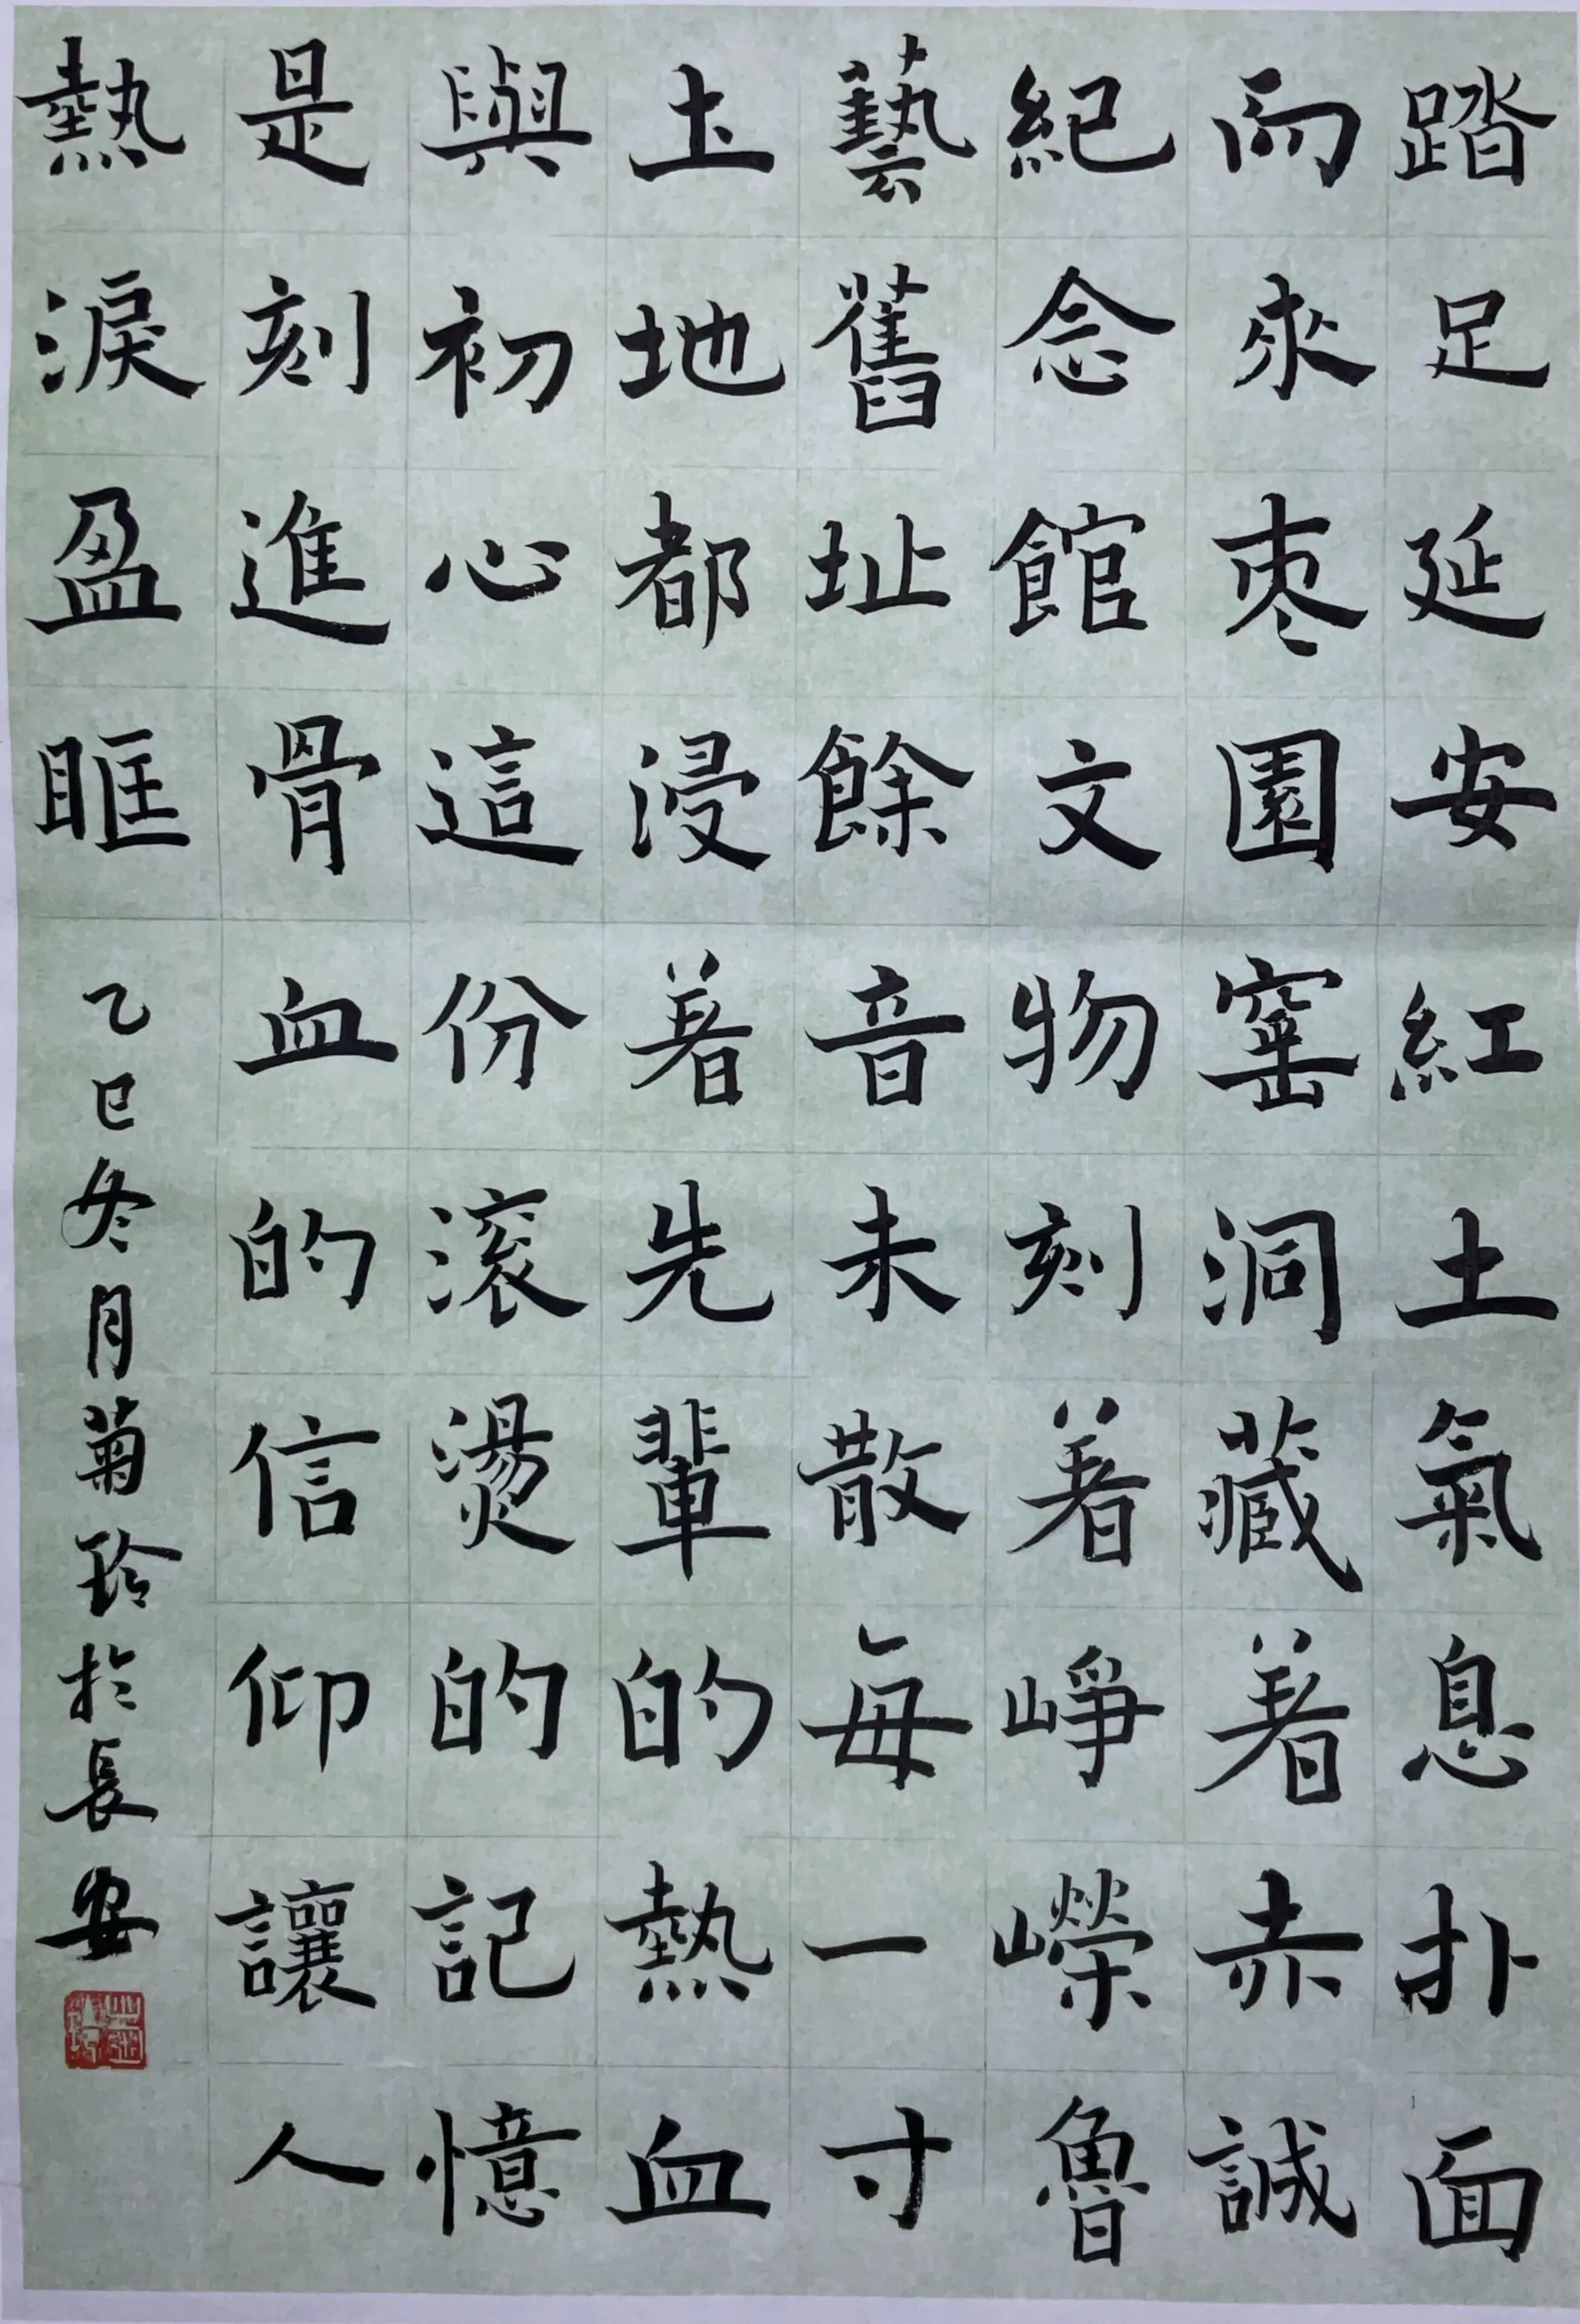 踏足延安紅土氣息扑面
而來枣園窰洞藏着赤誠
紀念館文物刻着崢嶸魯
藝舊址餘音未散每一寸
土地都浸着先輩的熱血
與初心這份滚燙的記憶
是刻進骨血的信仰讓人
熱淚盈眶
乙巳冬月菊玲於長安